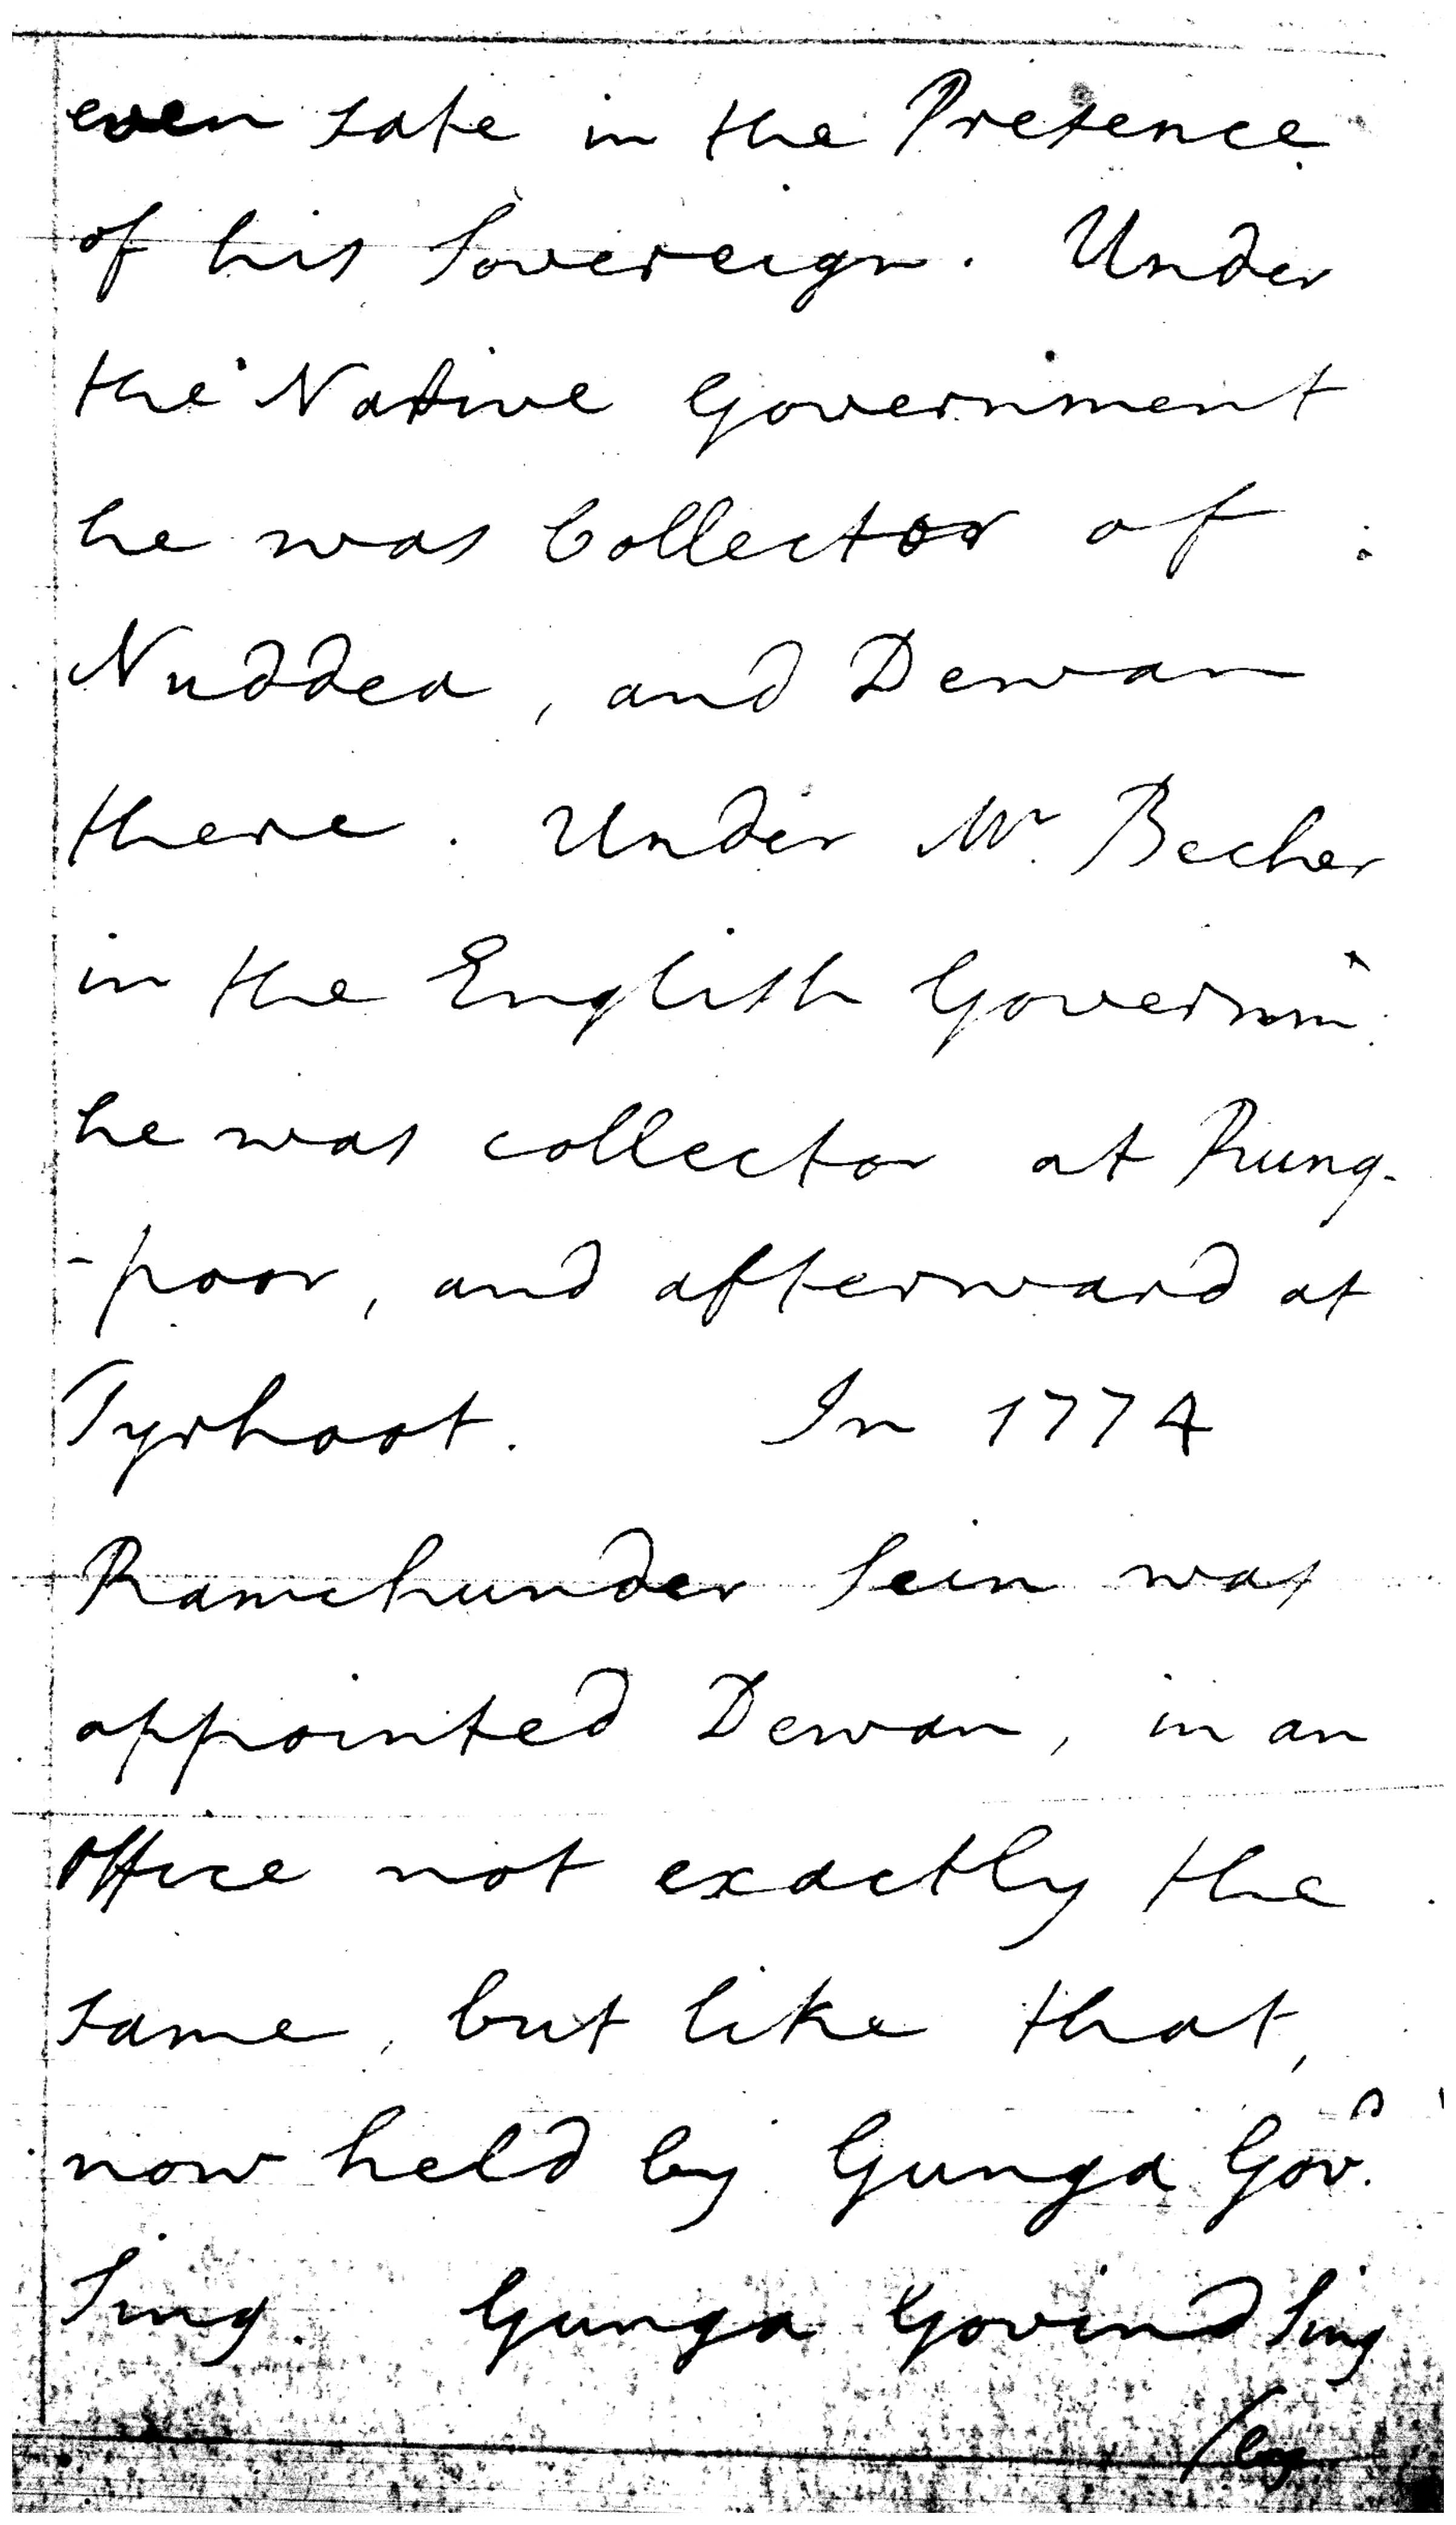 even sate in the Presence
of his Sovereign. Under
the Native Government
he was Collector of
Nuddea, and Dewan
there. Under Mr. Becher
in the English Governm^t.
he was collector at Rung-
-poor, and afterward at
Tyrhoot. In 1774
Ramchunder Sein was
appointed Dewan, in an
Office not exactly the
same, but like that,
now held by Gunga Gov^d.
Sing. Gunga Govind Sing